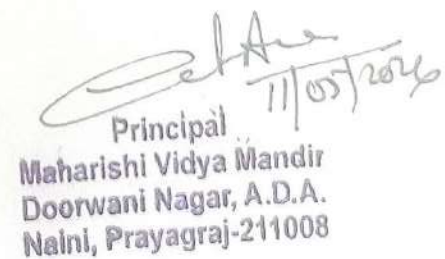 11/05/2026
Principal
Maharishi Vidya Mandir
Doorwani Nagar, A.D.A.
Naini, Prayagraj-211008